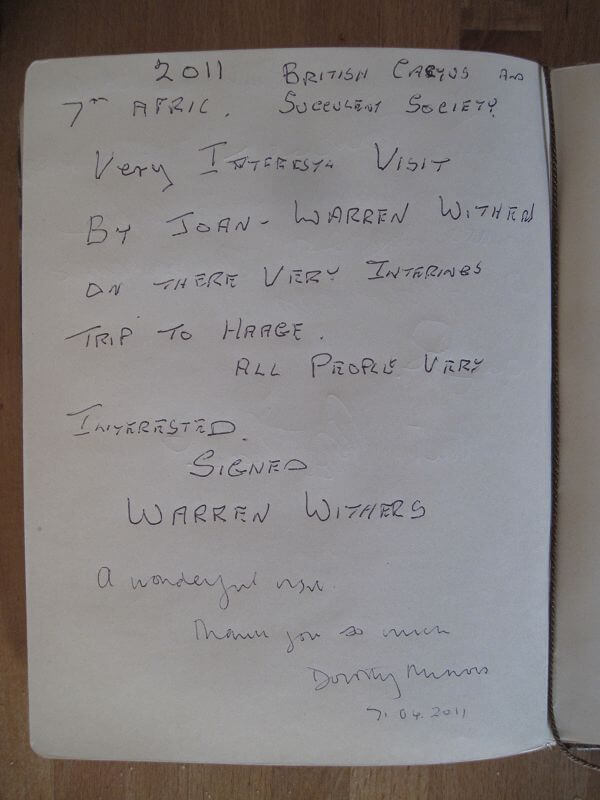 2011 BRITISH CACTUS AND
7TH APRIL. SUCCULENT SOCIETY.
Very INTERESTN VISIT
BY JOAN - WARREN WITHERS
ON THERE VERY INTERINGS
TRIP TO HAAGE.
ALL PEOPLE VERY
INTERESTED.
SIGNED
WARREN WITHERS
A wonderful visit.
Thank you so much
Dorothy
7. 04. 2011